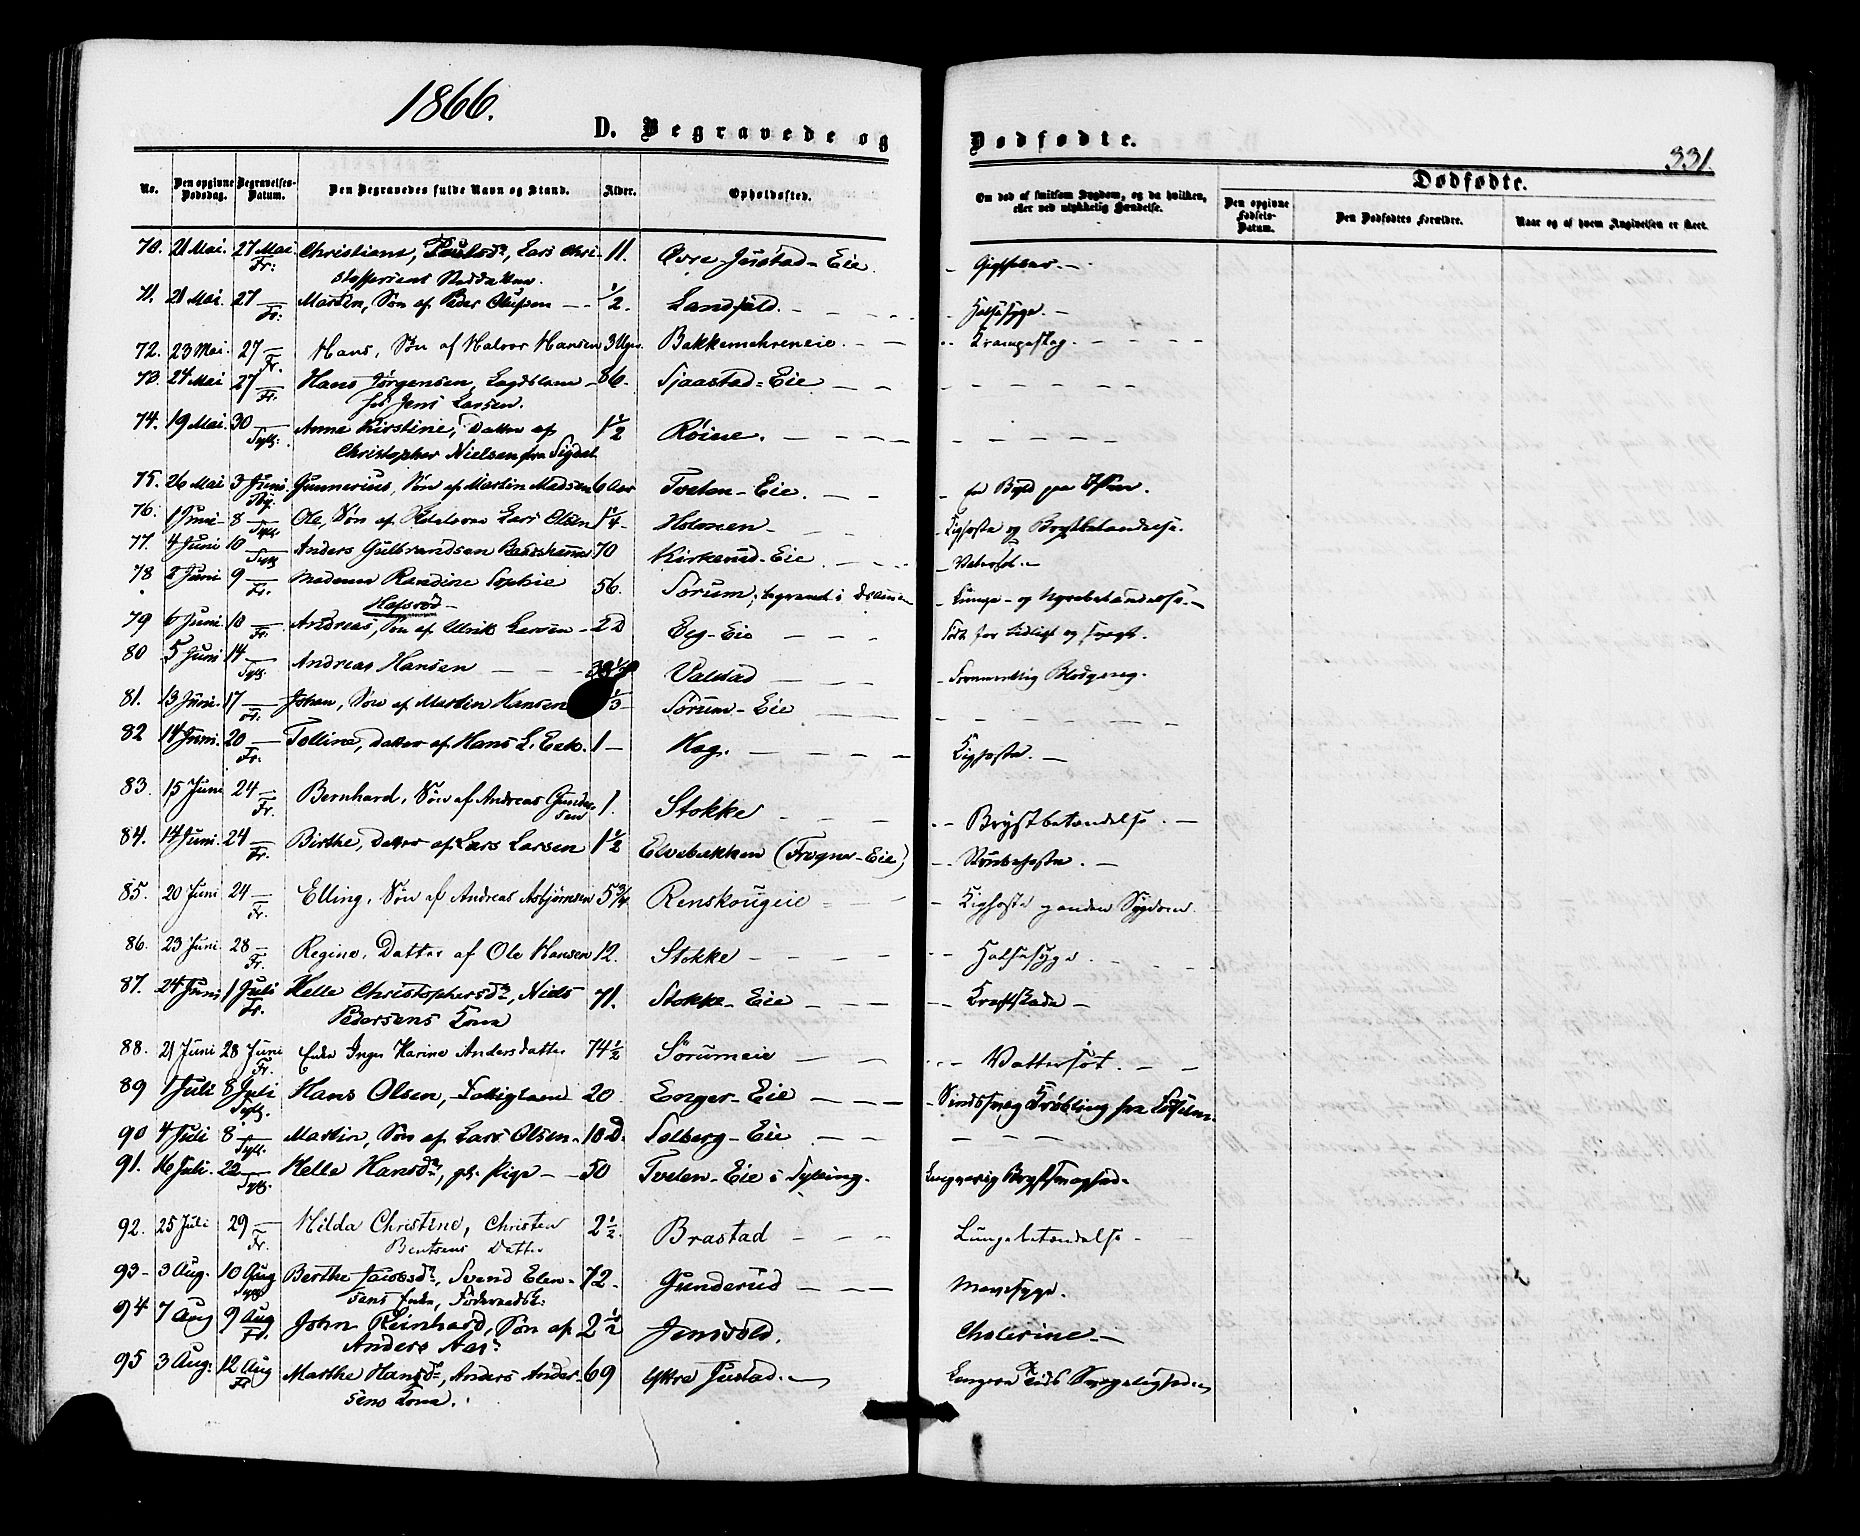 1866.
D. Begravede og Dødfødte.
331.
No. Den opgivne Dødsdag. Begravelses-Datum. Den Begravedes fulde Navn og Stand. Alder. Opholdssted. Om død af smitsom Sygdom, og da hvilken, eller ved ulykkelig Hændelse. Dødfødte.
Den opgivne Fødsels-Datum. Den Dødfødtes Forældre. Naar og af hvem Angivelsen er skeet.
70. 21 Mai. 27 Mai Fr: Christiane, Lars Chri- 11. Øvre Justad-Eie.
stoffersens Steddatter.
71. 21 Mai. 27 Fr. Martin, Søn af Peder Olufsen 1/2. Landfald. Halssyge.
72. 23 Mai. 27 Fr. Hans, Søn af Halvor Hansen 3 Uger Bakkemehreneie. Krampeslag.
73. 24 Mai 27 Fr. Hans Jørgensen, Lagdslem 86. Sjaastad-Eie
hos Jens Larsen.
74. 19 Mai. 30 Syll: Anne Kirstine, Datter af 1 1/2 Røine.
Christopher Nielsen fra Sigdal
75. 26 Mai 3 Juni Gunnerius, Søn af Martin Madsen 6 Aar Tveten-Eie. en Byld paa
76. 1 Juni 8 Syll. Ole, Søn af Lars Olsen 1 1/4 Holmen Kighoste og Brystbetændelse.
77. 4 Juni 10 Syll Anders Gulbrandsen 70 Kirkerud-Eie. Vatersot.
78 2 Juni 9 Fr. Madame Randine Sophie 56. Sørum, begravet i Drammen Lunge- og Nyrebetændelse.
Hafsrød
79 6 Juni 10 Fr. Andreas, Søn af Ulrik Larsen 2 D Eeg-Eie Født for tidligt og svagt.
80 5 Juni 14 Syll. Andreas Hansen Valstad
81. 13 Juni. 17 Fr. Johan, Søn af Martin Hansen 1/3 Sørum-Eie
82 14 Juni. 20 Fr. Tolline, Datter af Hans L. Eek. 1 Hag. Kighoste.
83. 15 Juni 24 Fr. Bernhard, Søn af Andreas Gunder- 1. Stokke Brystbetændelse.
sen
84. 14 Juni. 24 Fr. Birthe, Datter af Lars Larsen 1 1/2 Elvebakken (Frogner-Eie) Strubehoste.
85. 20 Juni 24 Fr. Elling, Søn af Andreas Asbjørnsen 5 3/4 Renskougeie Kighoste og anden Sygdom.
86. 23 Juni. 28 Fr. Regine, Datter af Ole Hansen 12. Stokke Halssyge.
87. 24 Juni 1 Juli Fr. Helle Christophersdr, Niels 71. Stokke-Eie Kræftskade
Pedersens Kone
88. 21 Juni 28 Juni Fr. Enke Inger Karine Andersdatter 74 1/2 Sørumeie Vattersot.
89 1 Juli 8 Juli Syll. Hans Olsen, Fattiglem 20. Enger-Eie Sindssvag Krøbling fra Fødselen.
90 4 Juli 8 Syll. Martin, Søn af Lars Olsen 10 D. Solberg-Eie
91. 16 Juli. 22 Syll. Helle Hansdr, gl: Pige 50 Tveten-Eie i Sylling. Langvarig Brystsvaghed.
92. 25 Juli 29 Fr. Hilda Christine, Christen 2 1/2 Brastad Lungebetændelse
Bentsens Datter
93 3 Aug. 10 Aug Syll Berthe Jacobsdr, Svend Elen- 72. Gunderud Mavesyge.
sens Enke, Føderaadsk:
94 7 Aug 9 Aug Fr. John Reinhard, Søn af 2 1/2 Jensvold. Cholerine
Anders Aas
95 3 Aug: 12 Aug Fr Marthe Hansdr, Anders Ander- 69 Yttre Justad. Langere Tids Svagelighed
sens Kone.